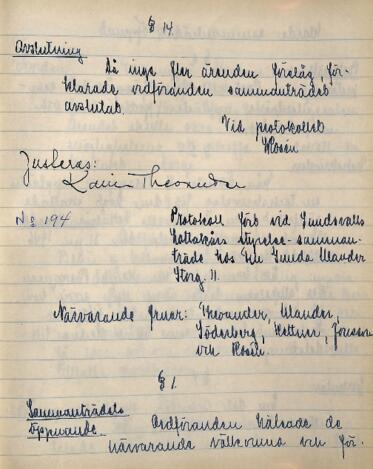 § 14.
Avslutning
Då inga fler ärenden förelåg, för-
klarade ordföranden sammanträdet
avslutat.
Vid protokollet
Rosén
Justeras:
Karin Theorander
No 194
Protokoll förb vid Sundsvalls
Lottakårs Styrelse-samman-
träde hos Fru Gunda Wander
Storg. 11.
Närvarande Fruar: Theorander, Wander,
Söderberg, Hettner, Jonsson
och Rosén.
§ 1.
Sammanträdets
öppnande.
Ordföranden hälsade de
närvarande välkomna och för-